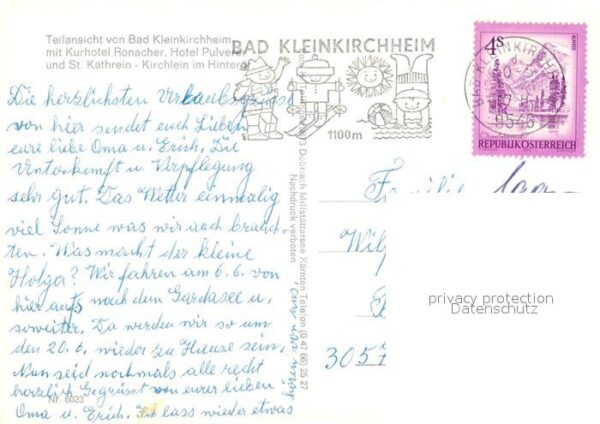 Teilansicht von Bad Kleinkirchheim
mit Kurhotel Ronacher, Hotel Pulverer
und St. Kathrein - Kirchlein im Hinterg
BAD KLEINKIRCHHEIM
1100m
BAD KLEINKIRCHHEIM
9546
4S
REPUBLIK ÖSTERREICH
Die herzlichsten Urlaubsgrüsse
von hier sendet euch Lieben
eure liebe Oma u. Erich. Die
Unterkunft u. Verpflegung
sehr gut. Das Wetter einmalig
viel Sonne was wir auch brauch-
ten. Was macht der kleine
Holga? Wir fahren am 6.6. von
hier aus nach dem Gardasee u.
soweiter. Da werden wir so um
den 20.6. wieder zu Hause sein.
Nun seid nochmals alle recht
herzlich Gegrüsst von eurer lieben
Oma u. Erich. Ich lass wieder etwas
Nr. 6023
Döbriach Millstättersee Kärnten Telefon (0 47 66) 25 27
Nachdruck verboten
Familie
Wil
3057
privacy protection
Datenschutz